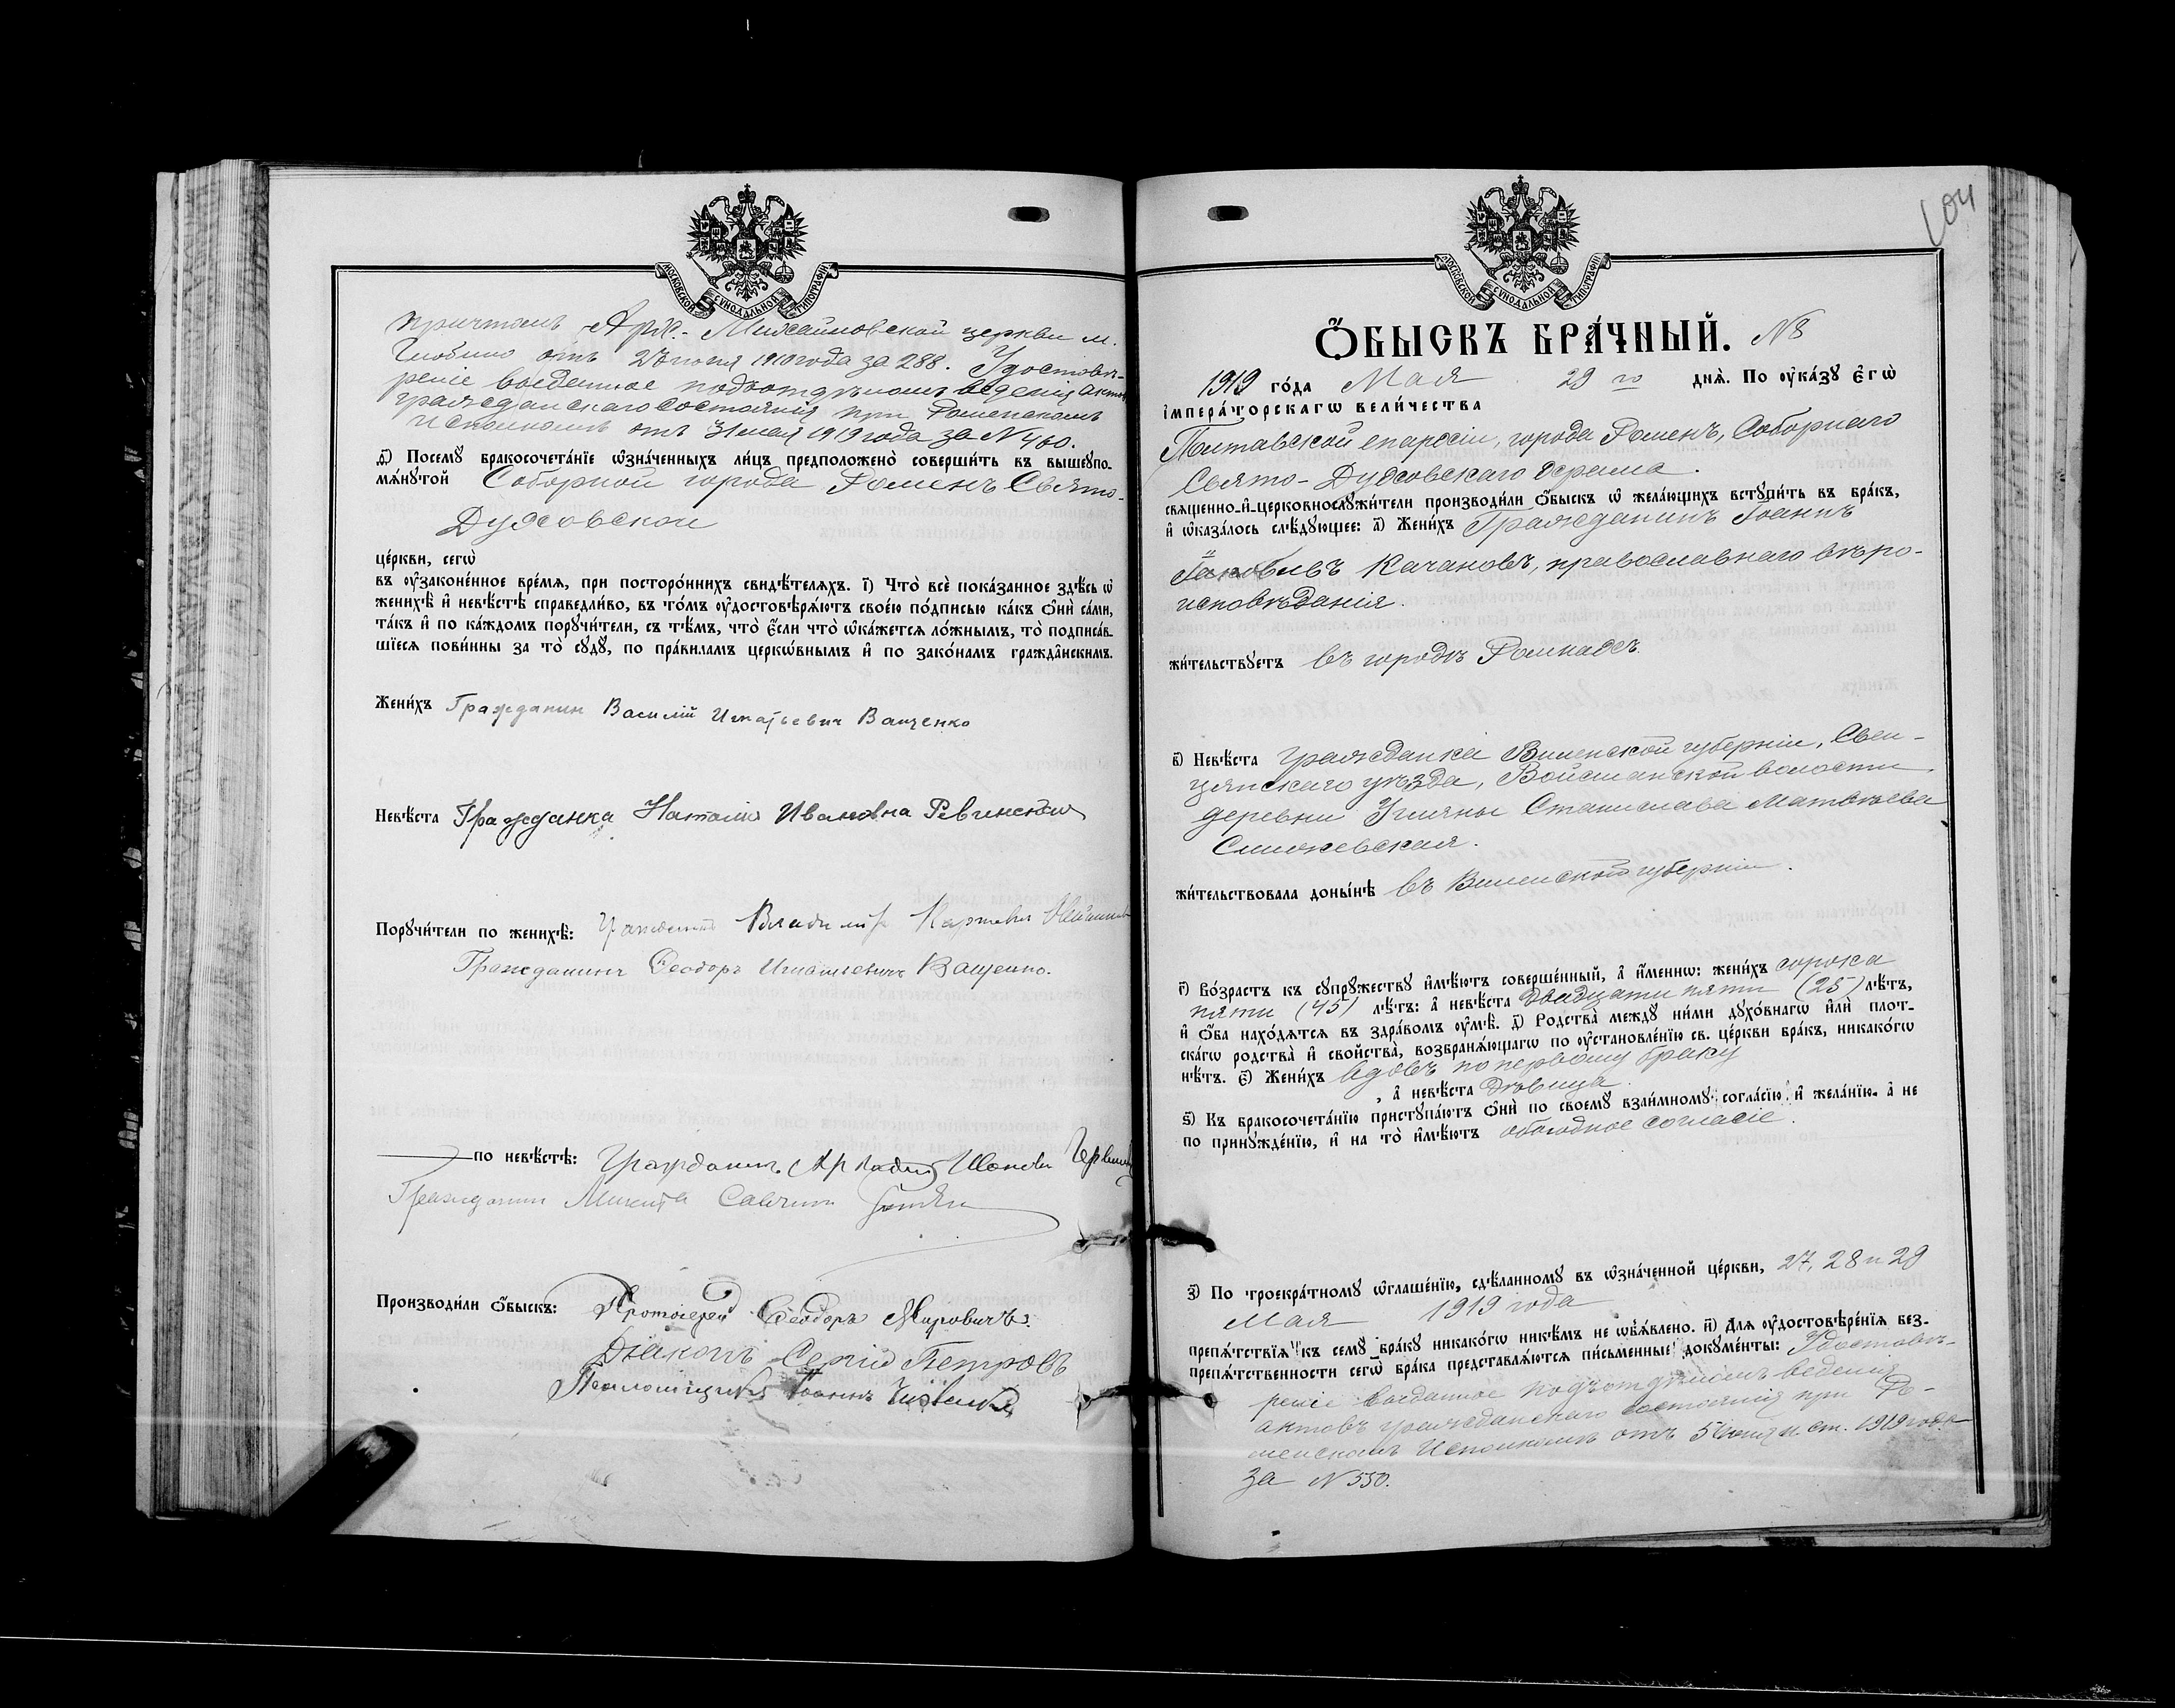 МОСКОВСКОЙ СѴНОДАЛЬНОЙ ТИПОГРАФІИ
причтомъ Арх.- Михайловской церкви м.
отъ 27 1910 года за 288. Удостовѣ-
реніе выданное подъотдѣломъ веденія актовъ
гражданскаго состоянія при Роменскомъ
Исполкомѣ отъ 31 мая 1919 года за N 460.
Ѳ҃) Посемꙋ бракосочета́нїе ѡзна́ченныхъ ли́цъ предположено̀ соверши́ть въ вышеꙋпо-
мѧ́нꙋтой Соборной города Роменъ Свято-
Духовской
це́ркви, сегѡ̀
въ ᲂу҆законе́нное вре́мѧ, при посторо́ннихъ свидѣ́телѧхъ. і҃) Что̀ всѐ пока́занное здѣ́сь ѡ҆
женихѣ̀ и҆ невѣ́стѣ справедли́во, въ то́мъ ᲂу҆достовѣрѧ́ютъ своею по́дписью ка́къ ѻ҆нѝ са́ми,
та́къ и҆ по ка́ждомъ порꙋчи́тели, съ тѣ́мъ, что̀ є҆́сли что̀ ѡ҆ка́жетсѧ ло́жнымъ, то̀ подписа́в-
шїесѧ пови́нны за то̀ сꙋдꙋ̀, по пра́виламъ церкѡ́внымъ и҆ по зако́намъ гражда̂нскимъ.
Жени́хъ Гражданин Василій Игнатьевич Ващенко
Невѣ́ста Гражданка Наталія Ивановна Ревинская
Порꙋчи́тели по женихѣ̀: Владимір Карпович
Гражданинъ Ѳеодоръ Игнатьевичъ Ващенко.
по невѣ́стѣ: Гражданин. Аркадий
Гражданин Микита Савичин
Производи́ли ѻ҆́быскъ: Протоіерей Ѳеодоръ Мировичъ.
Діаконъ Сергій Петровъ
Псаломщикъ Іоаннъ
104
МОСКОВСКОЙ СѴНОДАЛЬНОЙ ТИПОГРАФІИ
Ѻ҆́БЫСКЪ БРА́ЧНЫЙ. N 8
1919 го́да Мая 29 го днѧ̀. По ᲂу҆ка́зꙋ є҆гѡ̀
і҆мпера́торскагѡ вели́чества
Полтавской епархіи, города Роменъ, Соборнаго
Свято-Духовскаго храма.
свѧщенно-и҆-церковнослꙋжи́тели производи́ли ѻ҆́быскъ ѡ҆ жела́ющихъ встꙋпи́ть въ бра́къ,
и҆ ѡ҆каза́лось слѣ́дꙋющее: а҃) Жени́хъ Гражданинъ Іоаннъ
Іаковлевъ Качановъ, православнаго вѣро-
исповѣданія.
жи́тельствꙋетъ въ городѣ Ромнахъ.
в҃) Невѣ́ста гражданка Виленской губерніи, Свен-
цянскаго уѣзда, Войстанской волости
деревни Станислава Матвѣева
жи́тельствовала доны́нѣ въ Виленской губерніи.
г҃) Во́зрастъ къ сꙋпрꙋ́жествꙋ и҆мѣ́ютъ соверше́нный, а҆ и҆́меннѡ: жени́хъ сорока
пяти (45) лѣ́тъ: а҆ невѣ́ста двадцати пяти (25) лѣ́тъ,
и҆ ѻ҆́ба нахо́дѧтсѧ въ здра́вомъ ᲂу҆мѣ̀. д҃) Родства̀ междꙋ̀ ни́ми дꙋхо́внагѡ и҆лѝ плот-
ска́гѡ родства̀ и҆ свойства̀, возбранѧ́ющагѡ по ᲂу҆становле́нїю св. це́ркви бра́къ, никако́гѡ
нѣ́тъ. є҃) Жени́хъ вдовъ по первому браку
, а҆ невѣ́ста дѣвица.
ѕ҃) Къ бракосочета́нїю пристꙋпа́ютъ ѻ҆нѝ по своемꙋ̀ взаи́мномꙋ согла́сїю и҆ жела́нїю, а҆ не
по принꙋжде́нїю, и҆ на то̀ и҆мѣ́ютъ обоюдное согласіе.
з҃) По троекра́тномꙋ ѡ҆глаше́нїю, сдѣ́ланномꙋ въ ѡ҆зна́ченной це́ркви, 27, 28 и 29
Мая 1919 года
препѧ́тствїѧ къ семꙋ̀ бра́кꙋ никако́гѡ никѣ́мъ не ѡ҆б̾ѧ́влено. и҃) Длѧ ᲂу҆достовѣре́нїѧ без-
препѧ́тственности сегѡ̀ бра́ка представлѧ́ютсѧ пи́сьменные докꙋме́нты: Удостовѣ-
реніе выданное подъотдѣломъ веденія
актовъ гражданскаго состоянія при Ро-
менскомъ Исполкомѣ отъ 5 іюня н. ст. 1919 года
за N 550.